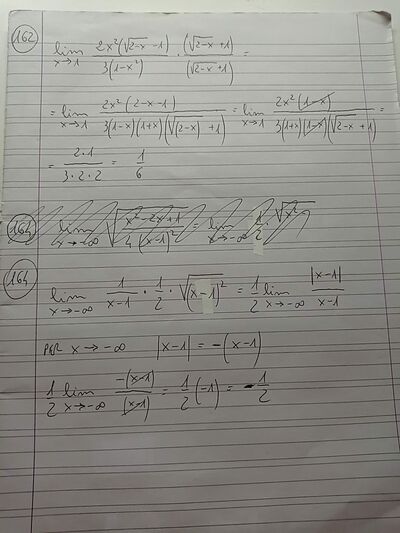 162
lim x→1 2x²(√2-x -1) / 3(1-x²) · (√2-x +1) / (√2-x +1) =
= lim x→1 2x²(2-x-1) / 3(1-x)(1+x)(√(2-x) +1) = lim x→1 2x²(1-x) / 3(1+x)(1-x)(√2-x +1) =
= 2·1 / 3·2·2 = 1/6
164 lim x→-∞ √x²-2x+1 / 4(x-1)² = lim x→-∞ 1/2 √x²
164
lim x→-∞ 1/x-1 · 1/2 · √(x-1)² = 1/2 lim x→-∞ |x-1| / x-1
PER x→-∞ |x-1| = -(x-1)
1/2 lim x→-∞ -(x-1) / (x-1) = 1/2 (-1) = -1/2